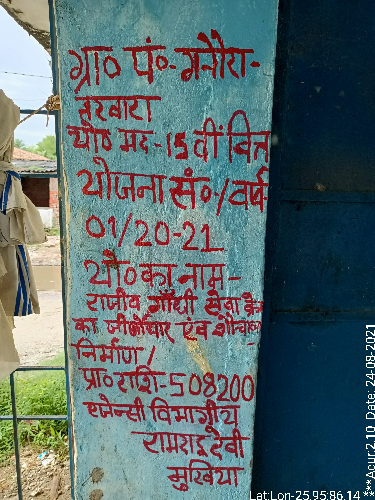 ग्रा० पं०-गनौरा-
तरवारा
यो० मद-15वीं वित्त
योजना सं०/वर्ष
01/20-21
यो० का नाम-
राजीव गाँधी सेवा केन्द्र
का जीर्णोधार एवं शौचालय
निर्माण/
प्रा० राशि-508200
एजेन्सी विभागीय
रामराइ देवी
मुखिया
Lat:Lon-25.9586,14
***Acur:2.10 Date: 24-08-2021